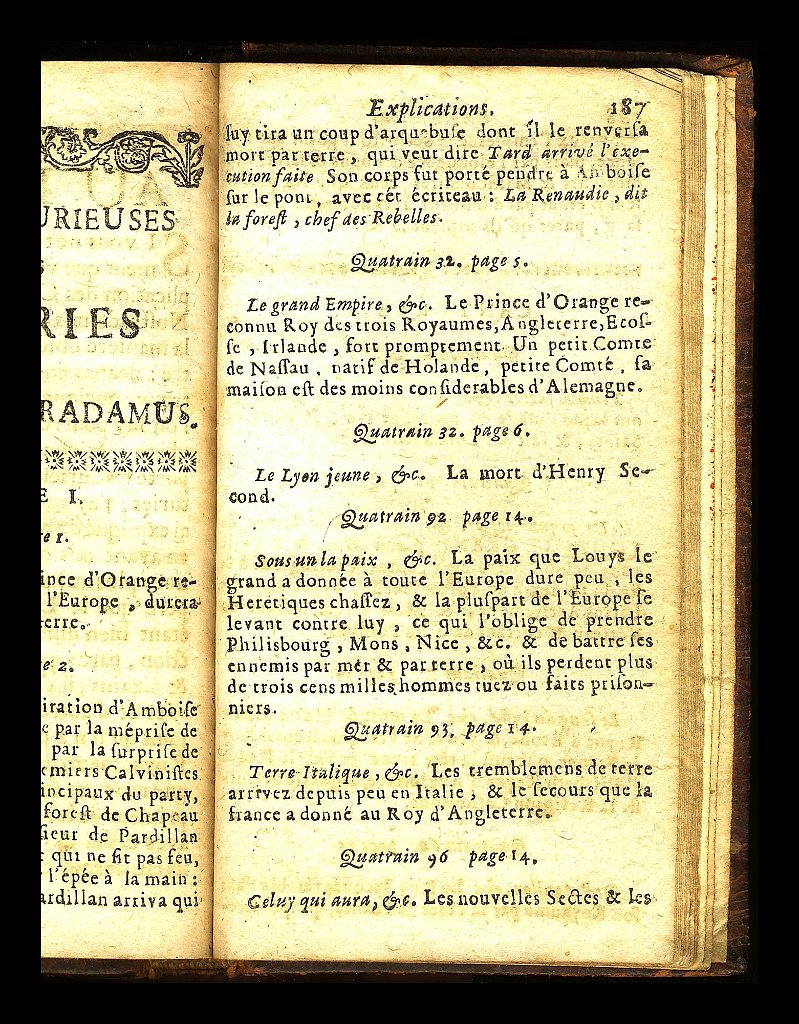 URIEUSES
RIES
RADAMUS.
E I.
re 1.
ince d'Orange re-
l'Europe, durera
erre.
e 2.
iration d'Amboise
e par la méprise de
par la surprise de
emiers Calvinistes
incipaux du party,
forest de Chapeau
sieur de Pardillan
t qui ne fit pas feu,
l'épée à la main :
ardillan arriva qui
Explications. 187
luy tira un coup d'arquebuse dont il le renversa
mort par terre, qui veut dire Tard arrivé l'exe-
cution faite Son corps fut porté pendre à Amboise
sur le pont, avec cét écriteau : La Renaudie, dit
la forest, chef des Rebelles.
Quatrain 32. page 5.
Le grand Empire, &c. Le Prince d'Orange re-
connu Roy des trois Royaumes, Angleterre, Ecos-
se, Irlande, fort promptement Un petit Comte
de Nassau, natif de Holande, petite Comté, sa
maison est des moins considerables d'Alemagne.
Quatrain 32. page 6.
Le Lyon jeune, &c. La mort d'Henry Se-
cond.
Quatrain 92 page 14.
Sous un la paix, &c. La paix que Louys le
grand a donnée à toute l'Europe dure peu, les
Heretiques chassez, & la pluspart de l'Europe se
levant contre luy, ce qui l'oblige de prendre
Philisbourg, Mons, Nice, &c. & de battre ses
ennemis par mer & par terre, où ils perdent plus
de trois cens milles hommes tuez ou faits prison-
niers.
Quatrain 93. page 14.
Terre Italique, &c. Les tremblemens de terre
arrivez depuis peu en Italie, & le secours que la
france a donné au Roy d'Angleterre.
Quatrain 96 page 14.
Celuy qui aura, &c. Les nouvelles Sectes & les